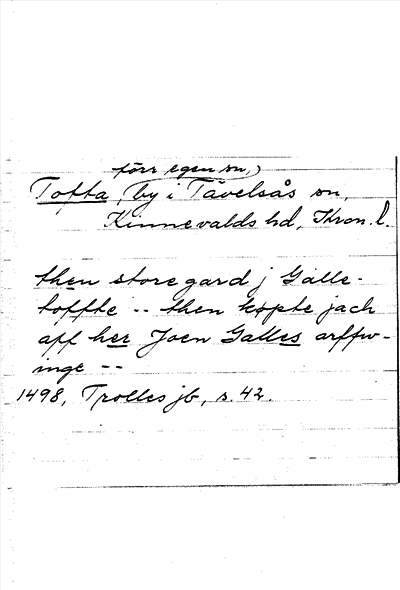 förr egen sn,)
Tofta, by i Tävelsås sn,
Kinnevalds hd, Kron. l.
then store gard j Galle-
toffte -- then køpte jach
aff her Joen Galles arffw-
inge --
1498, Trolles jb, s. 42.